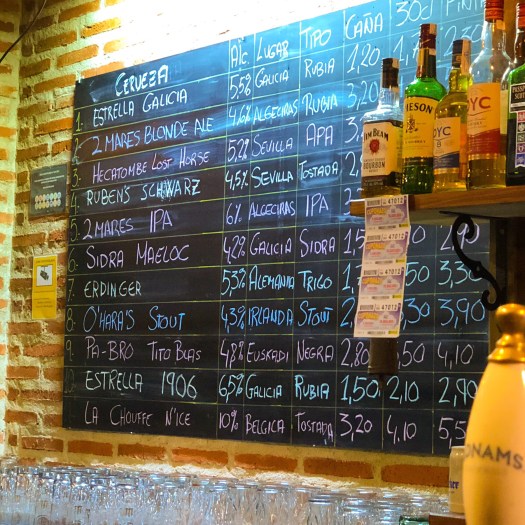 CERVEZA Alc. LUGAR TIPO CAÑA 30cl PINTA
1. ESTRELLA GALICIA 5,5% GALICIA RUBIA 1,20
2 2 MARES BLONDE ALE 4,6% ALGECIRAS RUBIA
3. HECATOMBE LOST HORSE 5,2% SEVILLA APA
4. RUBEN'S SCHWARZ 4,5% SEVILLA TOSTADA
5. 2 MARES IPA 6% ALGECIRAS IPA
6. SIDRA MAELOC 4,2% GALICIA SIDRA
7. ERDINGER 5,3% ALEMANIA TRIGO 3,30
8. O'HARA'S STOUT 4,3% IRLANDA STOUT 3,90
9. PA-BRO TITO BLAS 4,8% EUSKADI NEGRA 2,80 4,10
ESTRELLA 1906 6,5% GALICIA RUBIA 1,50 2,10 2,90
LA CHOUFFE N'ICE 10% BELGICA TOSTADA 3,20 4,10
JIM BEAM
BOURBON
JAMESON
DYC
DYC
47012
47012
47012
47012